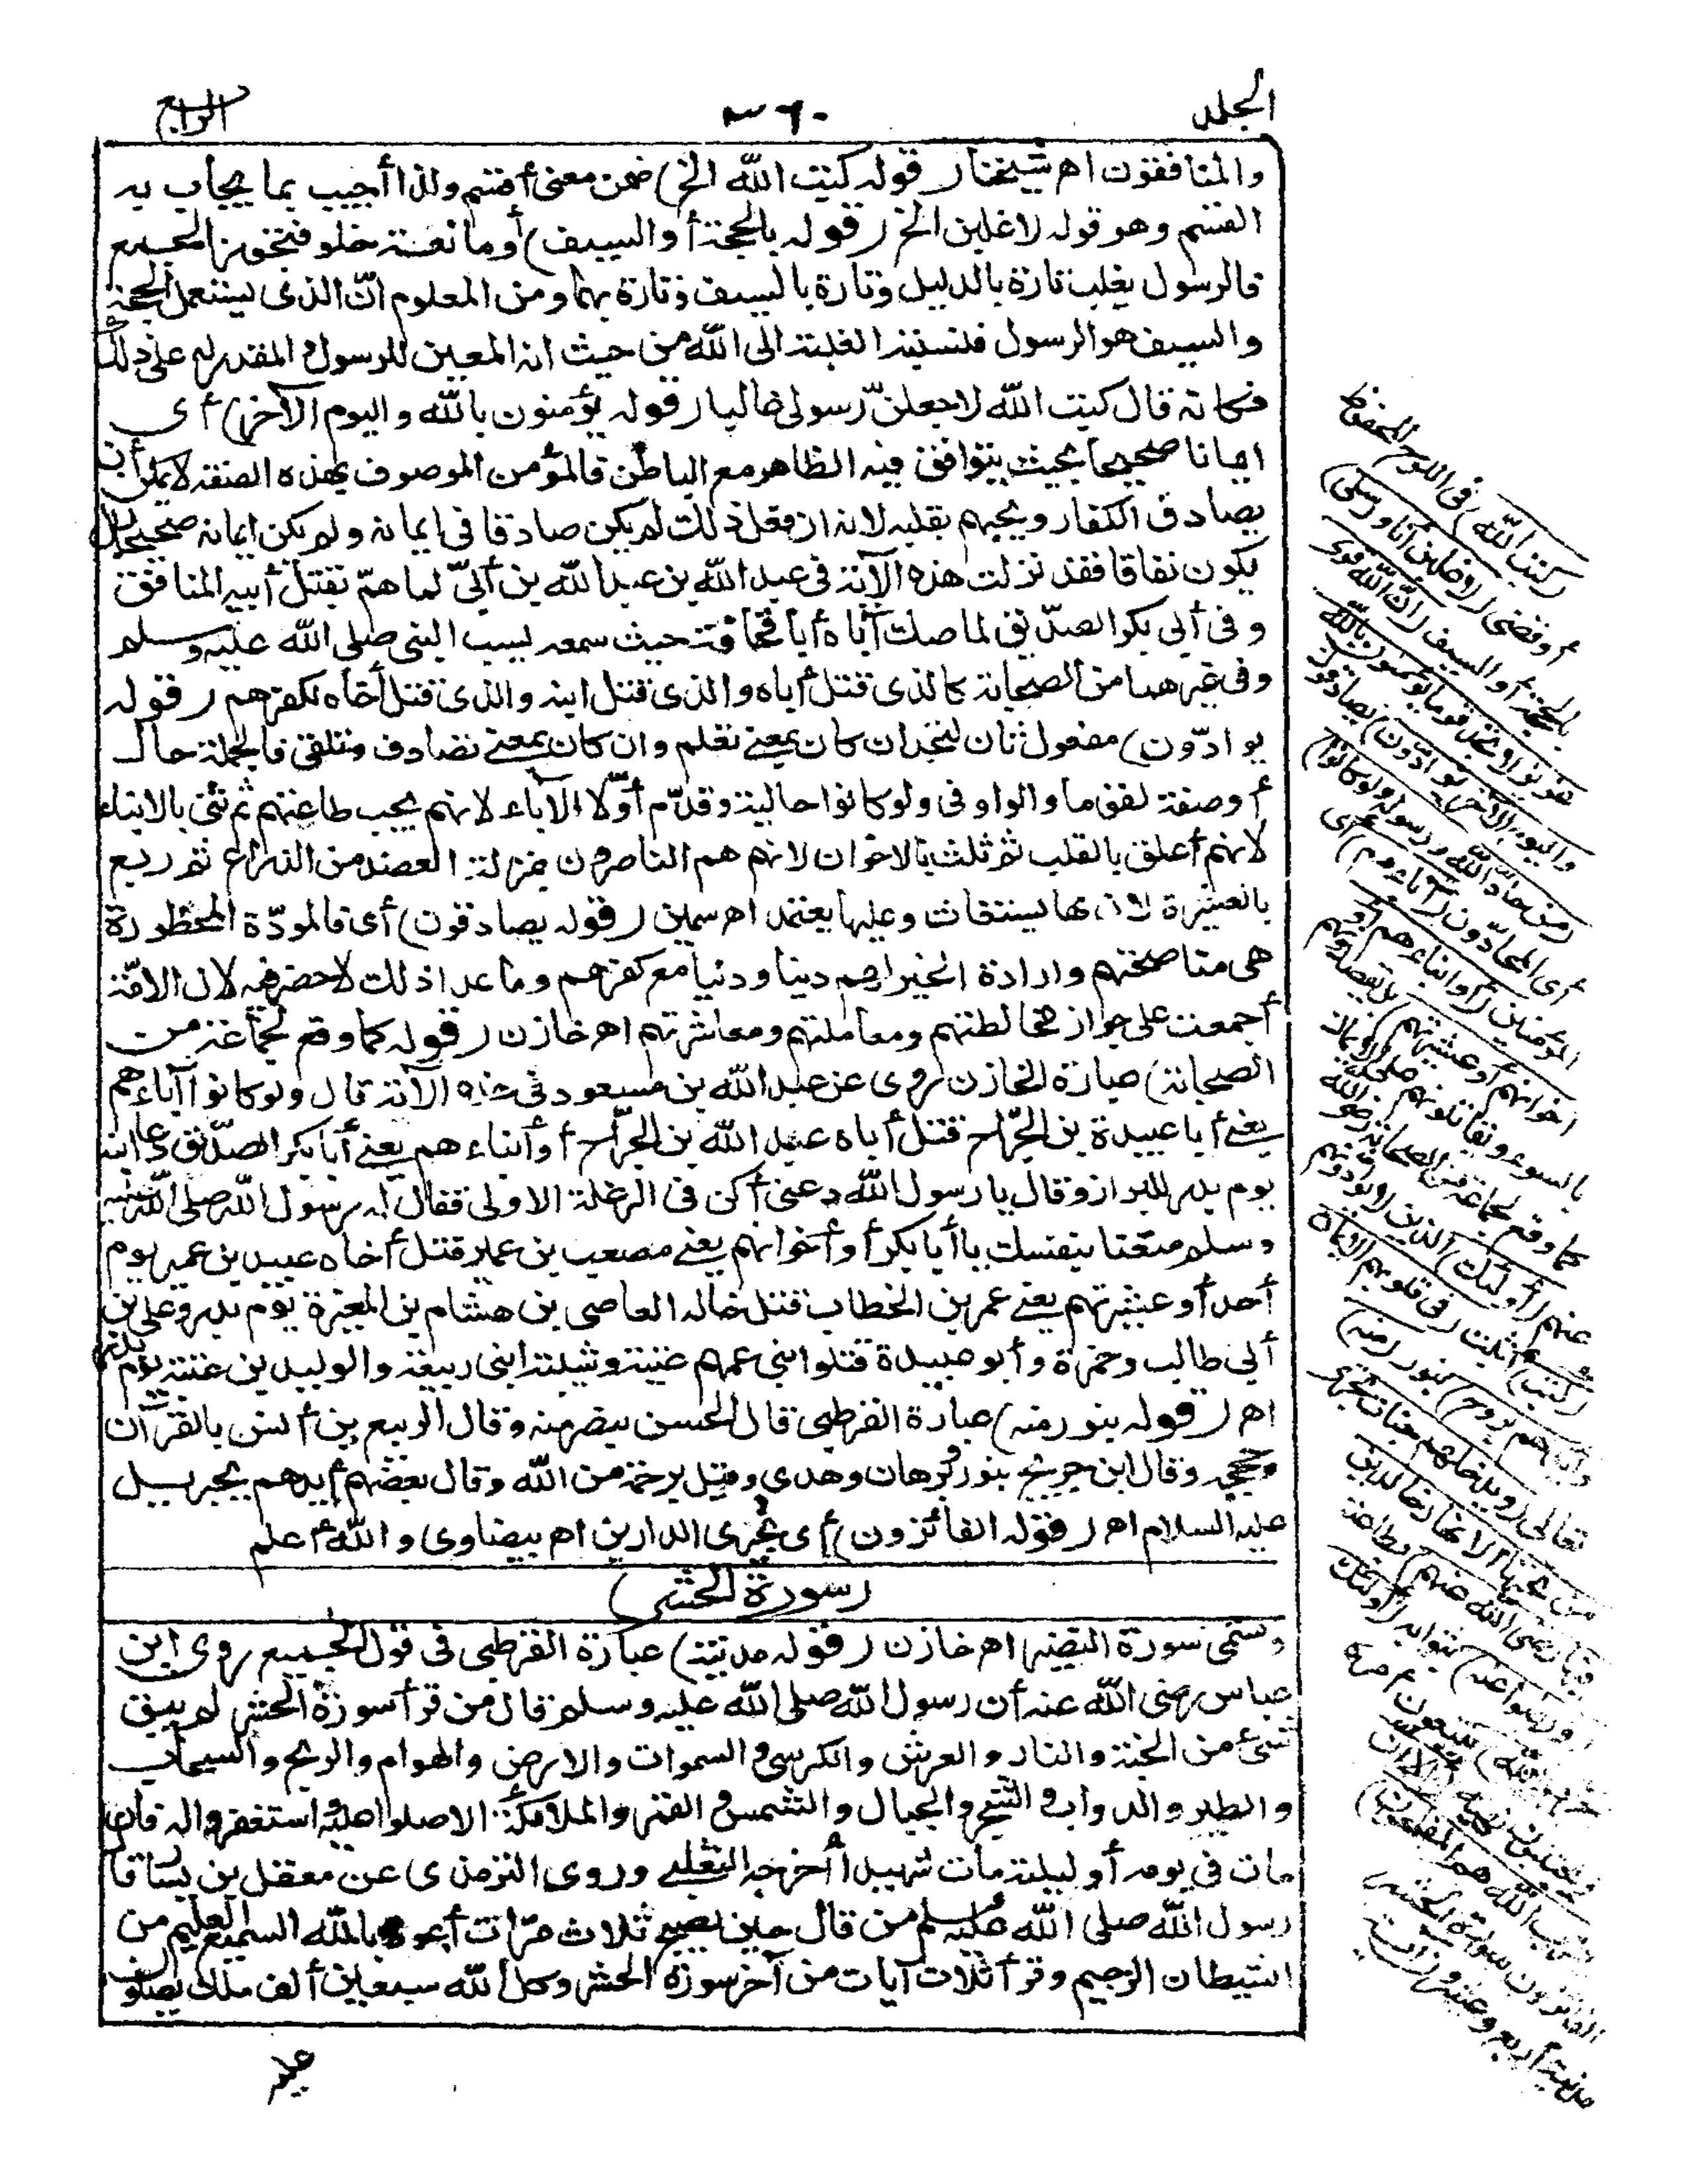 الجلد ٣٦٠ الرابع
والمنافقون اه شيخنا (قوله كتب الله الخ) ضمن معنى أقسم ولذا أجيب بما يجاب به
القسم وهو قوله لاغلبن الخ (قوله بالحجة أو السيف) أو مانعة خلو فتجوز الجمع
فالرسول يغلب تارة بالدليل وتارة بالسيف وتارة بهما ومن المعلوم انّ الذى يستعمل الحجة
والسيف هو الرسول فلنسبة الغلبة الى الله من حيث انه المعين للرسول المقدر له على ذلك
فكانه قال كتب الله لاجعلنّ رسولى غالبا (قوله يؤمنون بالله واليوم الآخر) أى
ايمانا صحيحا بحيث يتوافق فيه الظاهر مع الباطن فالمؤمن الموصوف بهذه الصفة لا يمكن أن
يصادق الكفار ويحبهم بقلبه لانه ان فعل ذلك لم يكن صادقا فى ايمانه ولم يكن ايمانه صحيحا بل
يكون نفاقا فقد نزلت هذه الآية فى عبد الله بن عبد الله بن أبىّ لما همّ بقتل أبيه المنافق
وفى أبى بكر الصدّيق لما صك أباه أبا قحافة حيث سمعه يسب النبى صلى الله عليه وسلم
وفى غيرهما من الصحابة كالذى قتل أباه والذى قتل ابنه والذى قتل أخاه لكفرهم (قوله
يوادّون) مفعول ثان لتجد ان كان بمعنى تعلم وان كان بمعنى تصادف وتلقى فالجملة حال
أو صفة لقوما والواو فى ولو كانوا حالية وقدّم أوّلا الآباء لانهم يجب طاعتهم ثم ثنى بالابناء
لانهم أعلق بالقلب ثم ثلث بالاخوان لانهم هم الناصرون بمنزلة العضد من الذراع ثم ربع
بالعشيرة لان بها يستغاث وعليها يعتمد اه سمين (قوله يصادقون) أى فالمودّة المحظورة
هى مناصحتهم وارادة الخير لهم دينا ودنيا مع كفرهم وما عدا ذلك لا حضر فيه لان الامّة
أجمعت على جواز مخالطتهم ومعاملتهم ومعاشرتهم اه خازن (قوله كما وقع لجماعة من
الصحابة) عبارة الخازن روى عن عبد الله بن مسعود فى هذه الآية قال ولو كانوا آباءهم
يعنى أبا عبيدة بن الجرّاح قتل أباه عبد الله بن الجرّاح أو أبناءهم يعنى أبا بكر الصدّيق دعا ابنه
يوم بدر للبراز وقال يا رسول الله دعنى أكن فى الرعلة الاولى فقال له رسول الله صلى الله عليه
وسلم متعنا بنفسك يا أبا بكر أو أخوانهم يعنى مصعب بن عمير قتل أخاه عبيد بن عمير يوم
أحد أو عشيرتهم يعنى عمر بن الخطاب قتل خاله العاصى بن هشام بن المغيرة يوم بدر وعلى بن
أبى طالب وحمزة وأبو عبيدة قتلوا بنى عمهم عتبة وشيبة ابنى ربيعة والوليد بن عتبة يوم بدر
اه (قوله بنور منه) عبارة القرطبى قال الحسن بنصر منه وقال الربيع بن أنس بالقرآن
وحججه وقال ابن جريج بنور وبرهان وهدى وقيل برحمة من الله وقال بعضهم أيدهم بجبريل
عليه السلام اه (قوله الفائزون) أى بخيرى الدارين اه بيضاوى والله أعلم
(سورة الحشر)
وتسمى سورة النضير اه خازن (قوله مدنية) عبارة القرطبى فى قول الجميع روى ابن
عباس رضى الله عنه أن رسول الله صلى الله عليه وسلم قال من قرأ سورة الحشر لم يبق
شئ من الجنة والنار والعرش والكرسى والسموات والارض والهوام والريح والسحاب
والطير والدواب والشجر والجبال والشمس والقمر والملائكة الا صلوا عليه واستغفروا له فان
مات فى يومه أو ليلته مات شهيدا أخرجه الثعلبى وروى الترمذى عن معقل بن يسار قال
رسول الله صلى الله عليه وسلم من قال حين يصبح ثلاث مرّات أعوذ بالله السميع العليم من
الشيطان الرجيم وقرأ ثلاث آيات من آخر سورة الحشر وكل الله سبعين ألف ملك يصلون
(كتب الله) فى اللوح المحفوظ
أو قضى (لاغلبن أنا ورسلى)
بالحجة أو السيف (انّ الله قوى
عزيز لا تجد قوما يؤمنون بالله
واليوم الآخر يوادّون) يصادقون
(من حادّ الله ورسوله ولو كانوا)
أى المحادّون (آباءهم) أى
المؤمنين (أو ابناءهم أو
اخوانهم أو عشيرتهم) بل يقصدونهم
بالسوء ويقاتلونهم على الايمان
كما وقع لجماعة من الصحابة رضى الله
عنهم (أولئك) الذين لا يوادّونهم
(كتب) أثبت (فى قلوبهم الايمان
وأيدهم بروح) بنور (منه)
تعالى (ويدخلهم جنات تجرى
من تحتها الانهار خالدين
فيها رضى الله عنهم) بطاعته
(ورضوا عنه) بثوابه (أولئك
حزب الله) يتبعون أمره
ويجتنبون نهيه (ألا ان
حزب الله هم المفلحون)
الفائزون سورة الحشر
مدنية أربع وعشرون آية
عليه